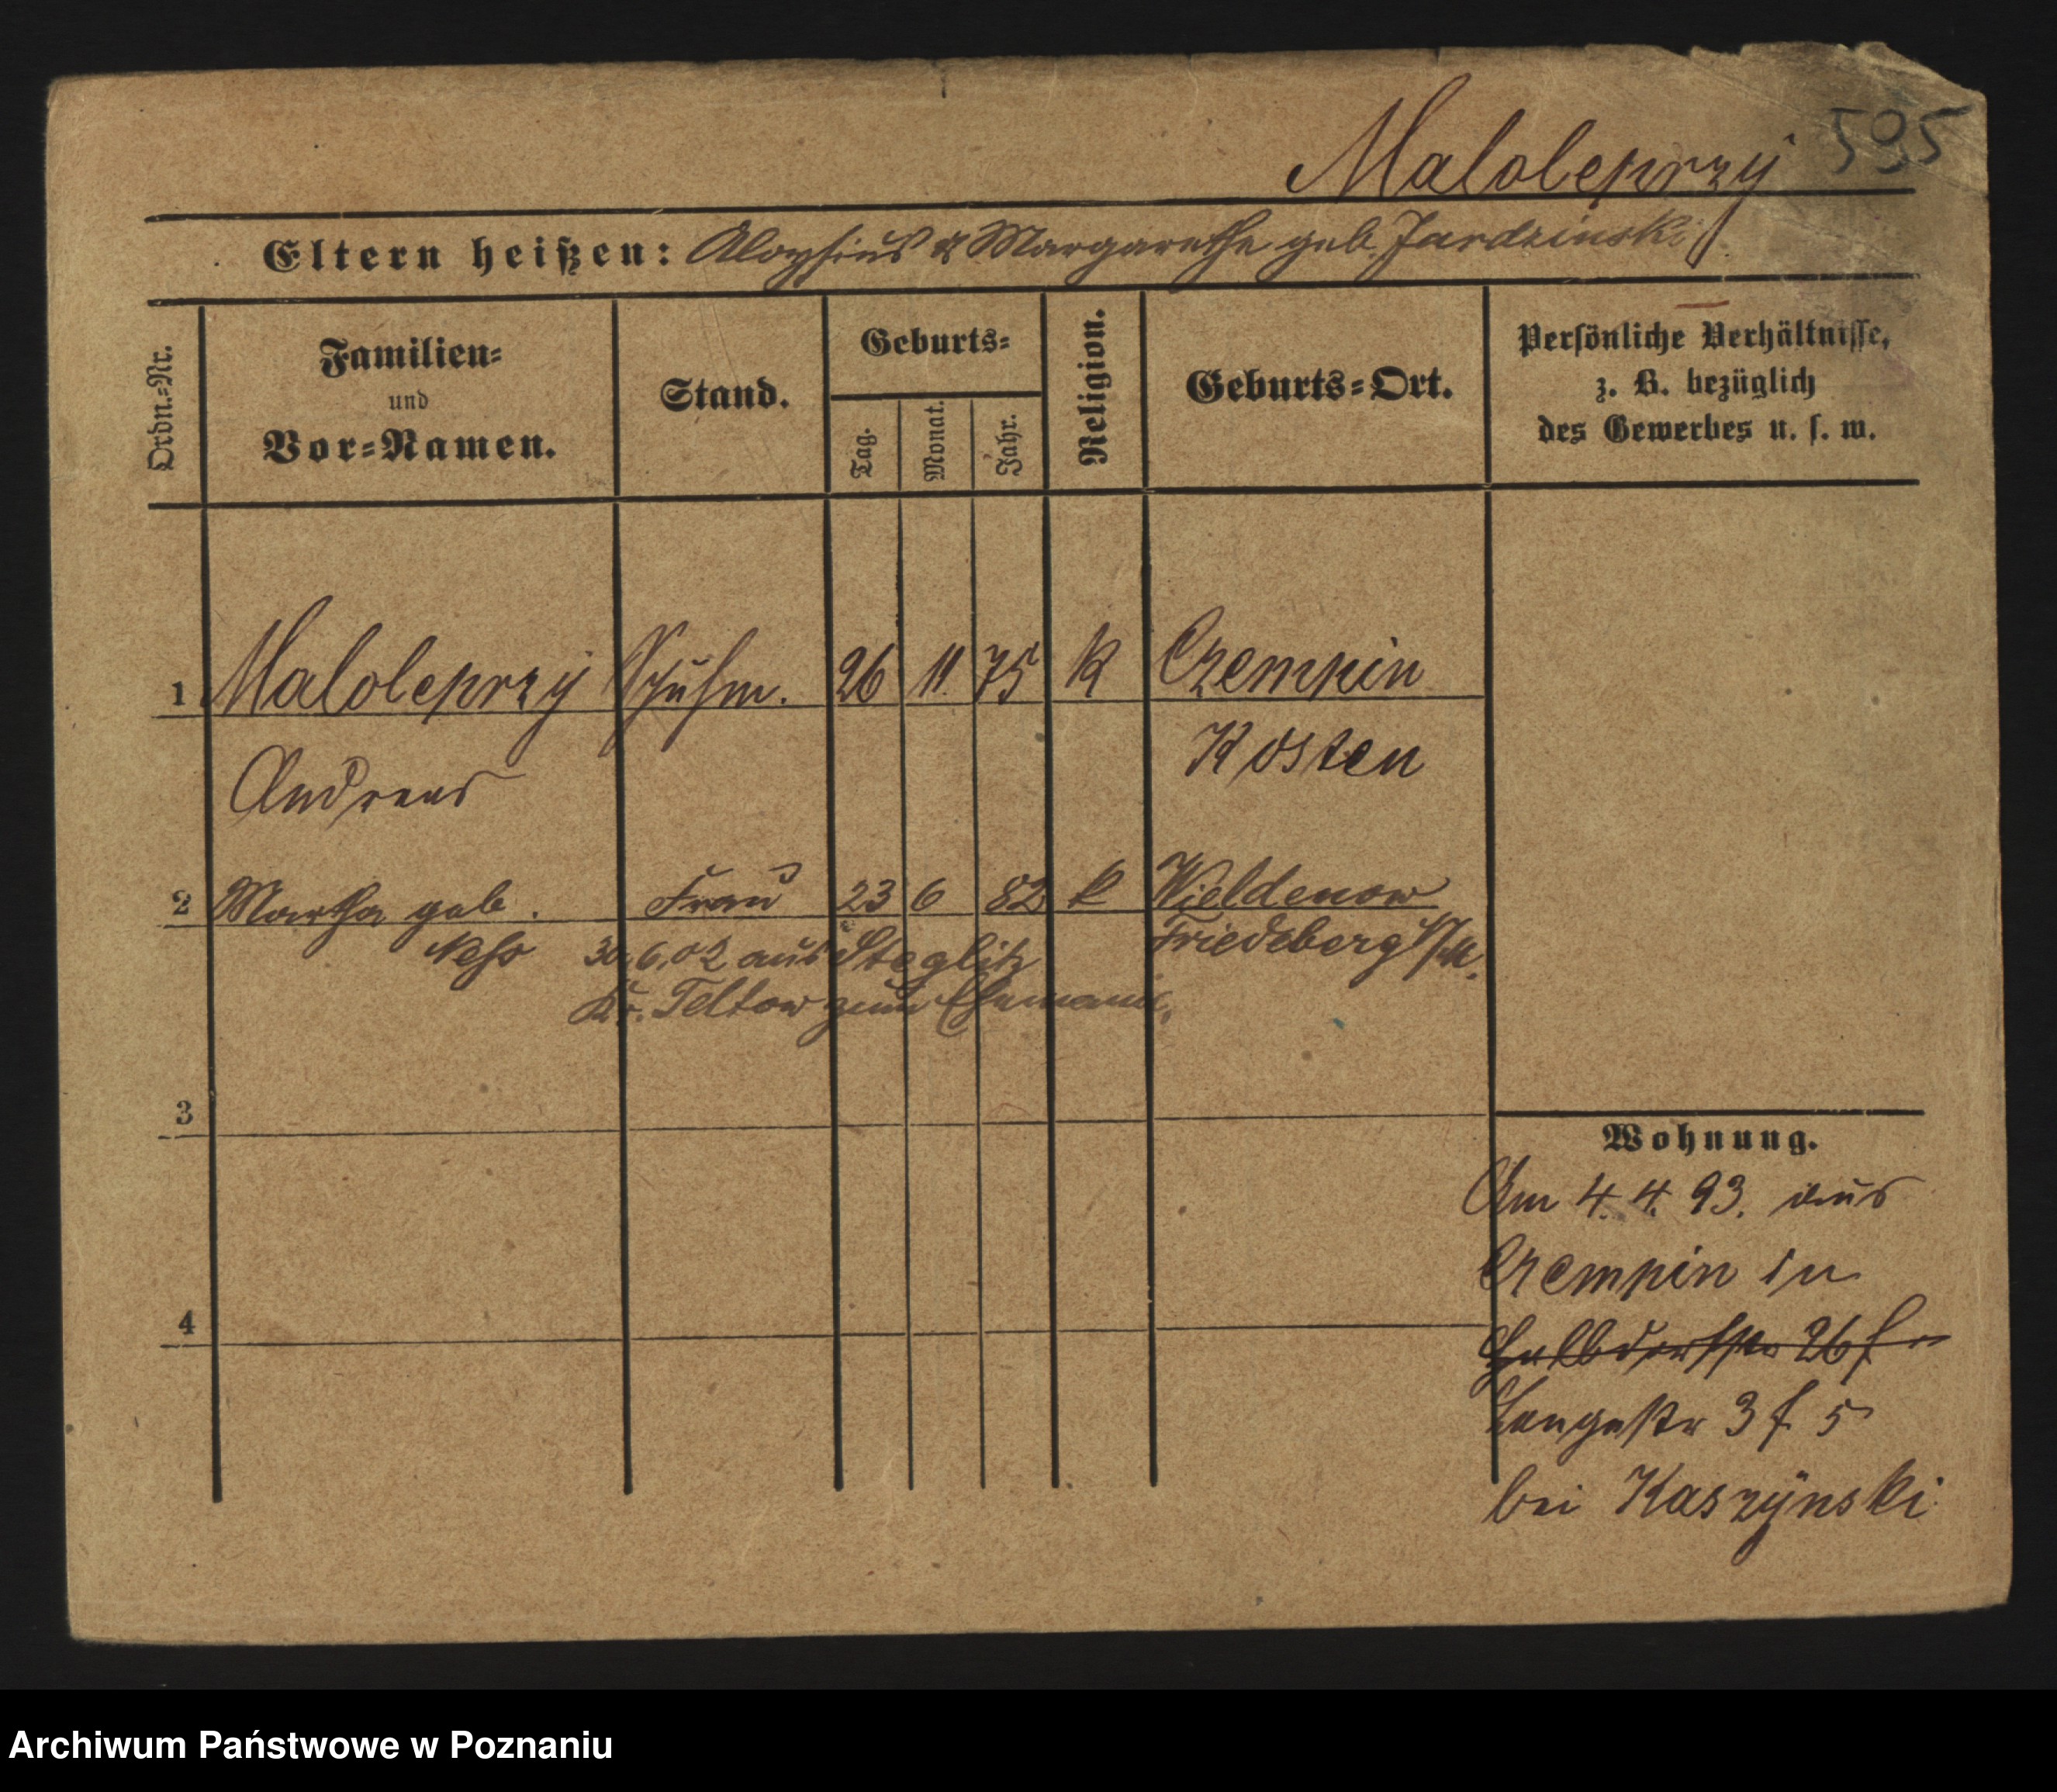 Maloleprzy 595
Eltern heißen: Aloysius & Margarethe geb. Jardzinski
Ordn.=Nr.
Familien=
und
Vor=Namen.
Stand.
Geburts=
Tag.
Monat.
Jahr.
Religion.
Geburts=Ort.
Persönliche Verhältnisse,
z. B. bezüglich
des Gewerbes u. s. w.
1 Maloleprzy Schuhm. 26 11. 75 K Czempin
Andreas Kosten
2 Martha geb. Frau 23 6 82 k Wieldenow
30.6.02 aus Steglitz Friedeberg N/M.
Kr. Teltow zum Ehemann.
3
4
Wohnung.
Am 4.4.93. aus
Czempin in
Halbdorfstr 26
Langestr 3 f 5
bei Kaszynski
Archiwum Państwowe w Poznaniu